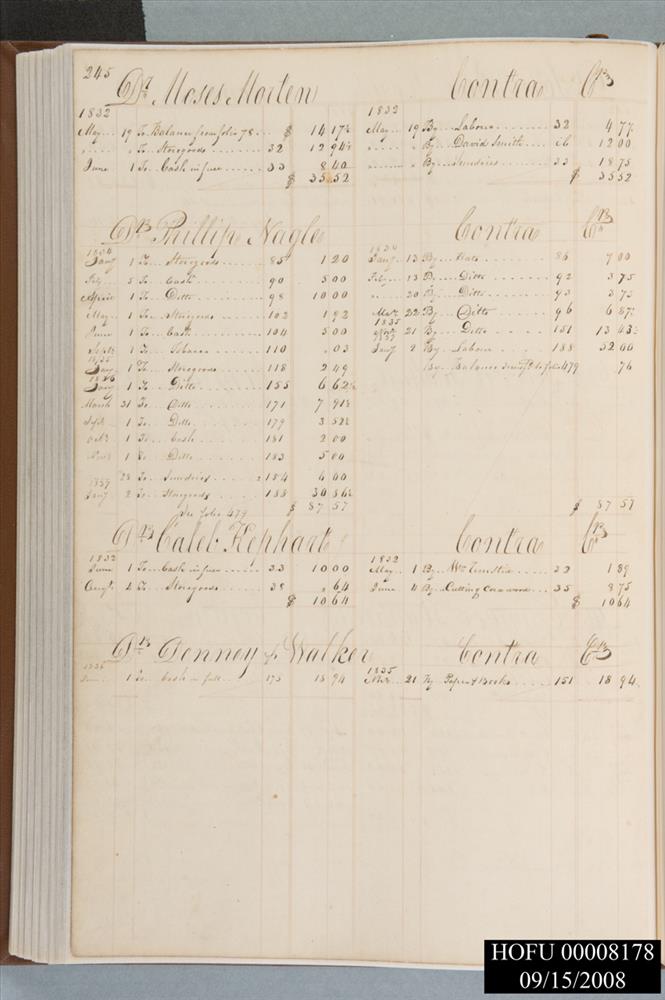 245
Dr Moses Morten Contra Cr
1832 1832
May 19 To Balance from folio 78 $ 14 17½ May 19 By Labour 32 4 77
" " To Storegoods 32 12 94½ " " By David Smith 12 00
June 1 To Cash in full 33 8 40 " " By Sundries 33 18 75
$ 35 52 $ 35 52
Dr Phillip Nagle Contra Cr
1834 1834
Jany 1 To Storegoods 85 1 20 Jany 13 By Oats 86 7 00
Feby 5 To Cash 90 5 00 Feby 13 By Ditto 92 3 75
April 1 To Ditto 98 10 00 " 20 By Ditto 93 3 75
May 1 To Storegoods 102 1 92 Mar 22 By Ditto 96 6 87½
June 1 To Cash 104 5 00 1835 Novr 21 By Ditto 151 13 43½
Sept 1 To Tobacco 110 " 03 1837 Jany 2 By Labour 188 52 00
1835 Jany 1 To Storegoods 118 2 49 By Balance folio 479 76
1836 Jany 1 To Ditto 155 6 62½
March 31 To Ditto 171 7 91½
Sept 1 To Ditto 179 3 52½
Octr 1 To Cash 181 2 00
Novr 1 To Ditto 183 5 00
" 28 To Sundries 184 6 00
1837
Jany 2 To Storegoods 188 30 86½
See folio 479 $ 87 57 $ 87 57
Dr Caleb Kephart Contra Cr
1832 1832
June 1 To Cash in full 33 10 00 May 1 By Wm 32 1 89
Augt 4 To Storegoods 38 " 64 June 4 By Cutting Cordwood 35 8 75
$ 10 64 $ 10 64
Dr Denney & Walker Contra Cr
1836 1835
1 To Cash in full 175 18 94 Novr 21 By Paper & Books 151 18 94
HOFU 00008178
09/15/2008